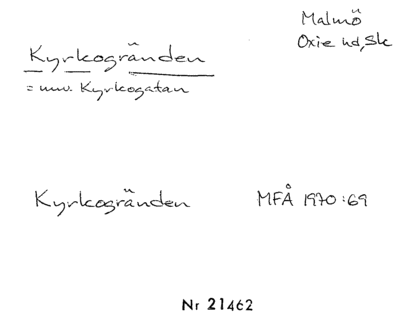 Malmö
Oxie hd, Sk
Kyrkogränden
= nuv. Kyrkogatan
Kyrkogränden MFÅ 1970:69
Nr 21462